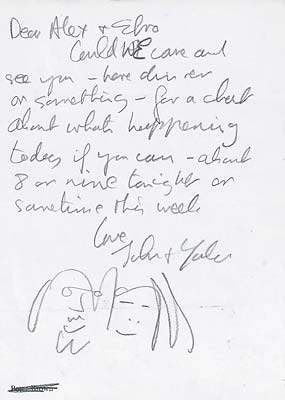 Dear Alex +
Could WE come and
see you - have dinner
or something - for a chat
about whats happening
today if you can - about
8 or nine tonight or
sometime this week
love
John + Yoko